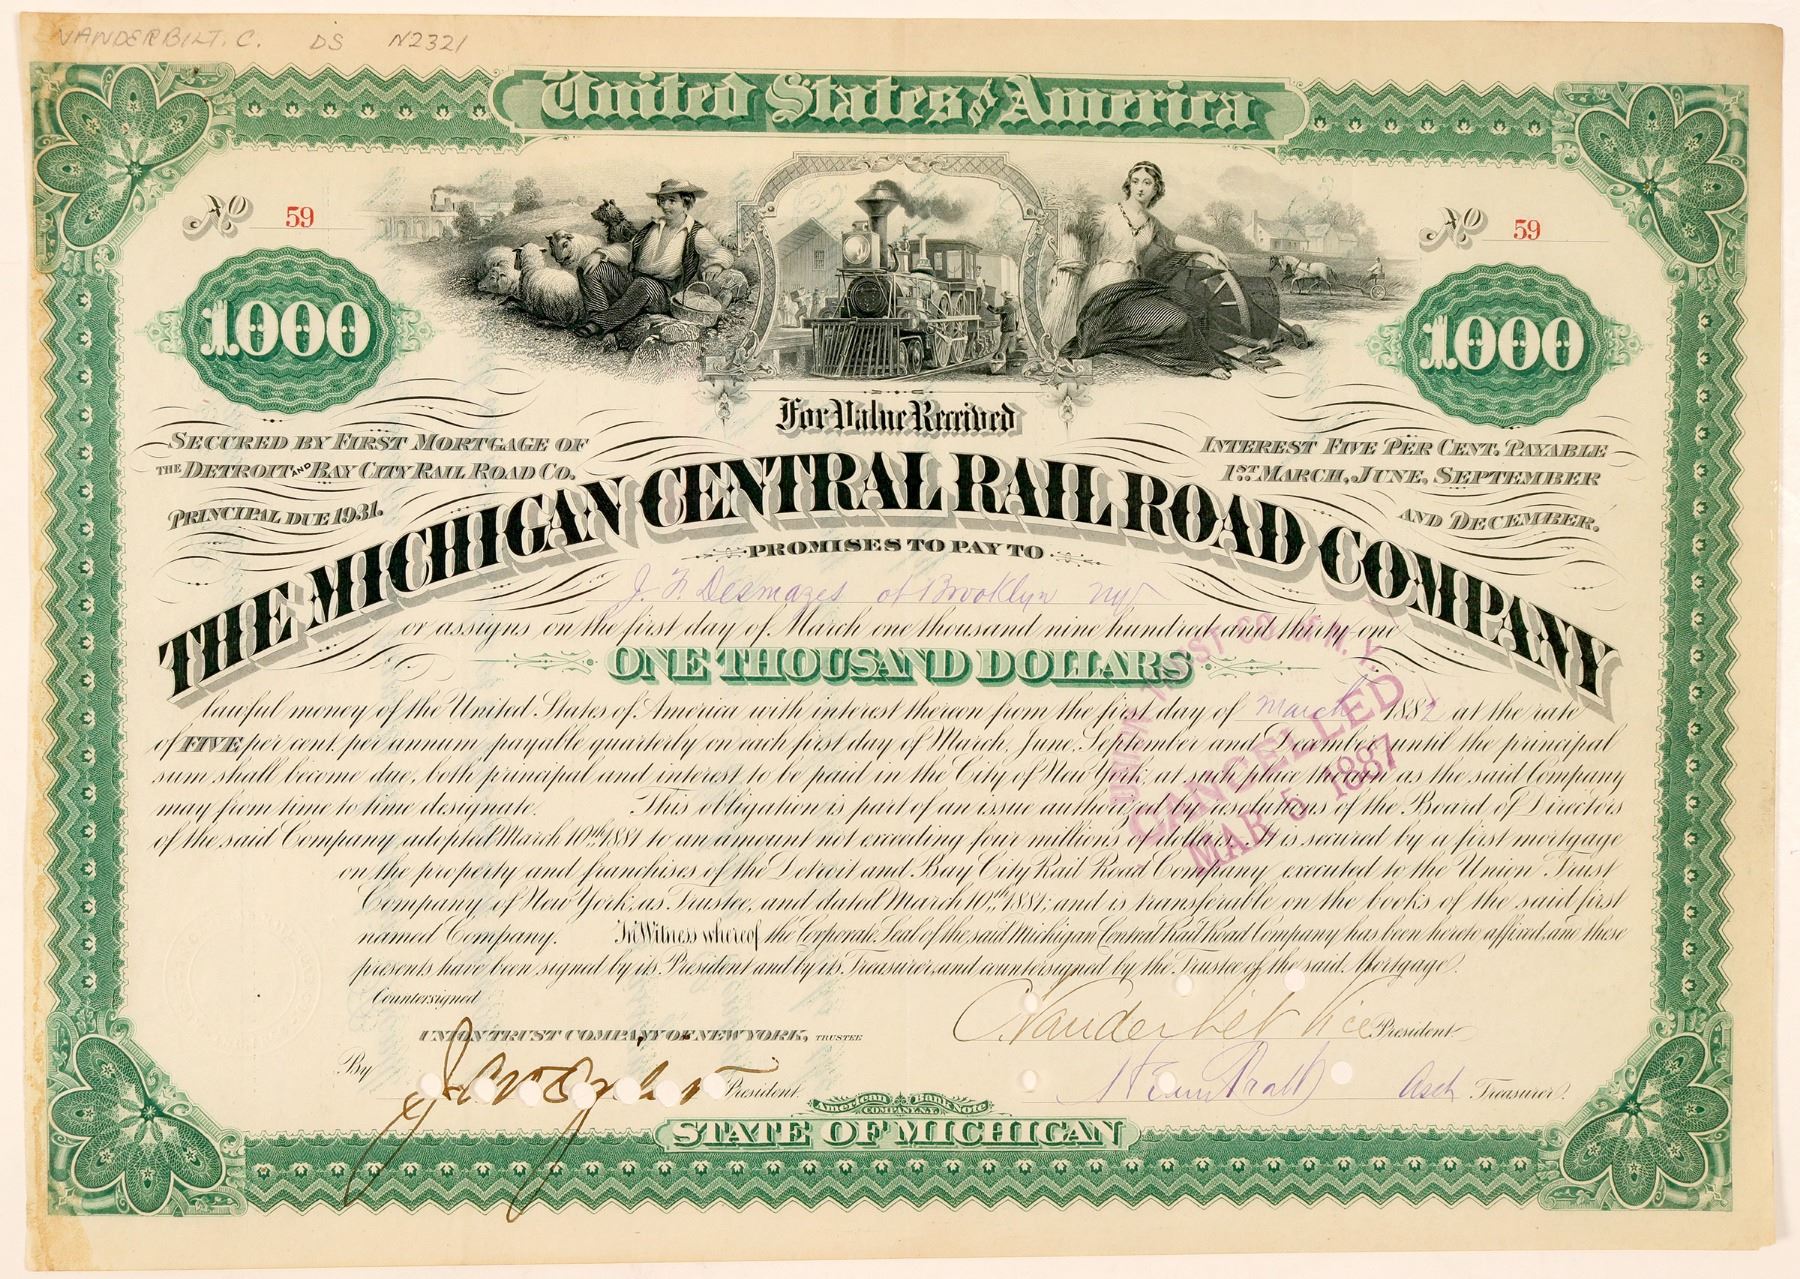 VANDERBILT. C. DS N2321
United States of America
No 59
No 59
1.000
1.000
For Value Received
SECURED BY FIRST MORTGAGE OF
THE DETROIT AND BAY CITY RAIL ROAD CO.
PRINCIPAL DUE 1931.
INTEREST FIVE PER CENT. PAYABLE
1ST MARCH, JUNE, SEPTEMBER
AND DECEMBER.
THE MICHIGAN CENTRAL RAIL ROAD COMPANY
PROMISES TO PAY TO
J. F. Desmazes of Brooklyn NY
or assigns on the first day of March one thousand nine hundred and thirty-one
ONE THOUSAND DOLLARS
lawful money of the United States of America with interest thereon from the first day of March 1882 at the rate
of FIVE per cent. per annum payable quarterly on each first day of March, June, September and December until the principal
sum shall become due, both principal and interest to be paid in the City of New York, at such place therein as the said Company
may from time to time designate. This obligation is part of an issue authorized by resolutions of the Board of Directors
of the said Company adopted March 10th 1881 to an amount not exceeding four millions of dollars. It is secured by a first mortgage
on the property and franchises of the Detroit and Bay City Rail Road Company executed to the Union Trust
Company of New York, as Trustee, and dated March 10th 1881, and is transferable on the books of the said first
named Company. In Witness whereof the Corporate Seal of the said Michigan Central Rail Road Company has been hereto affixed, and these
presents have been signed by its President and by its Treasurer, and countersigned by the Trustee of the said Mortgage.
UNION TRUST CO. OF N. Y.
CANCELLED
MAR 5 1887
Countersigned
UNION TRUST COMPANY OF NEW YORK, TRUSTEE
By President.
C. Vanderbilt Vice President
Asst Treasurer.
American Bank Note
COMPANY N.Y.
STATE OF MICHIGAN